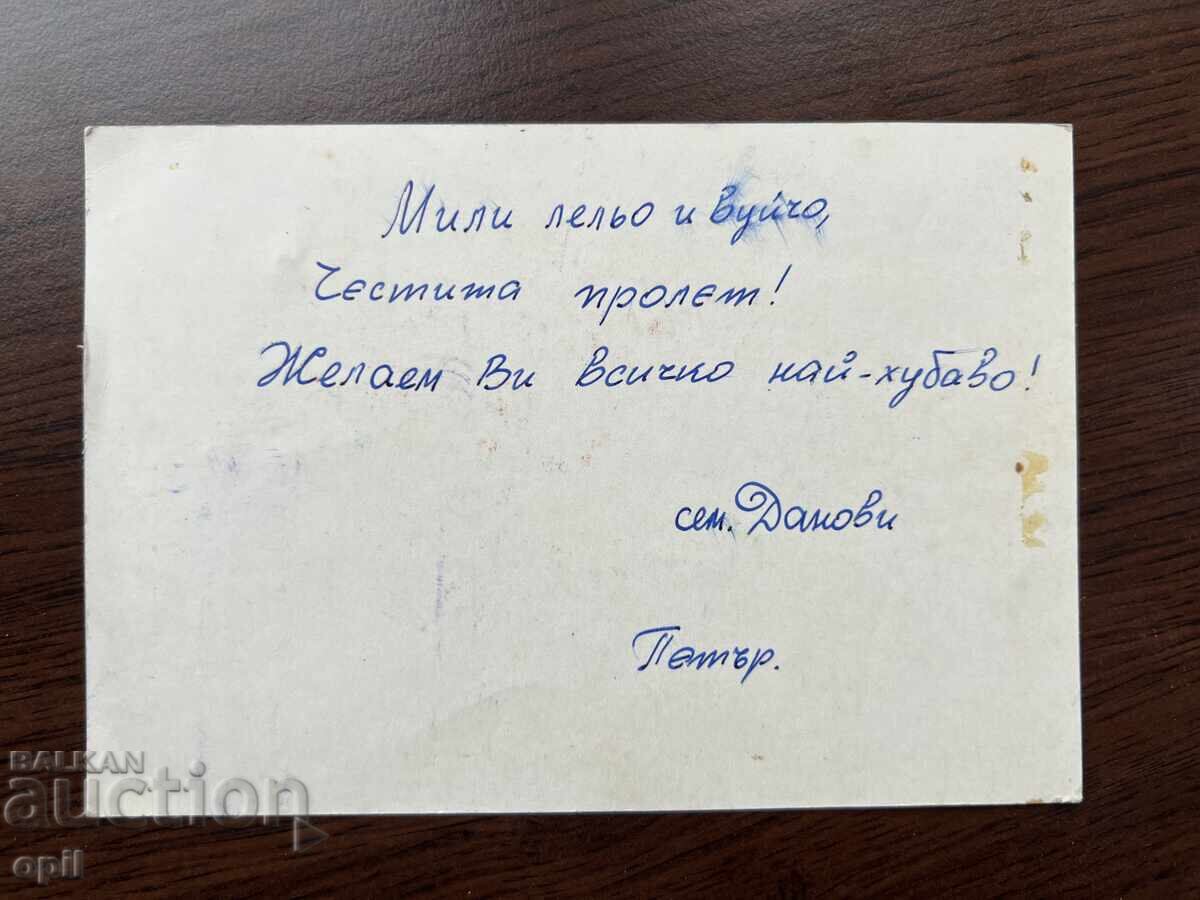 Мили лельо и вуйчо,
Честита пролет!
Желаем Ви всичко най-хубаво!
сем. Данови
Петър.
BALKAN
auction
opil